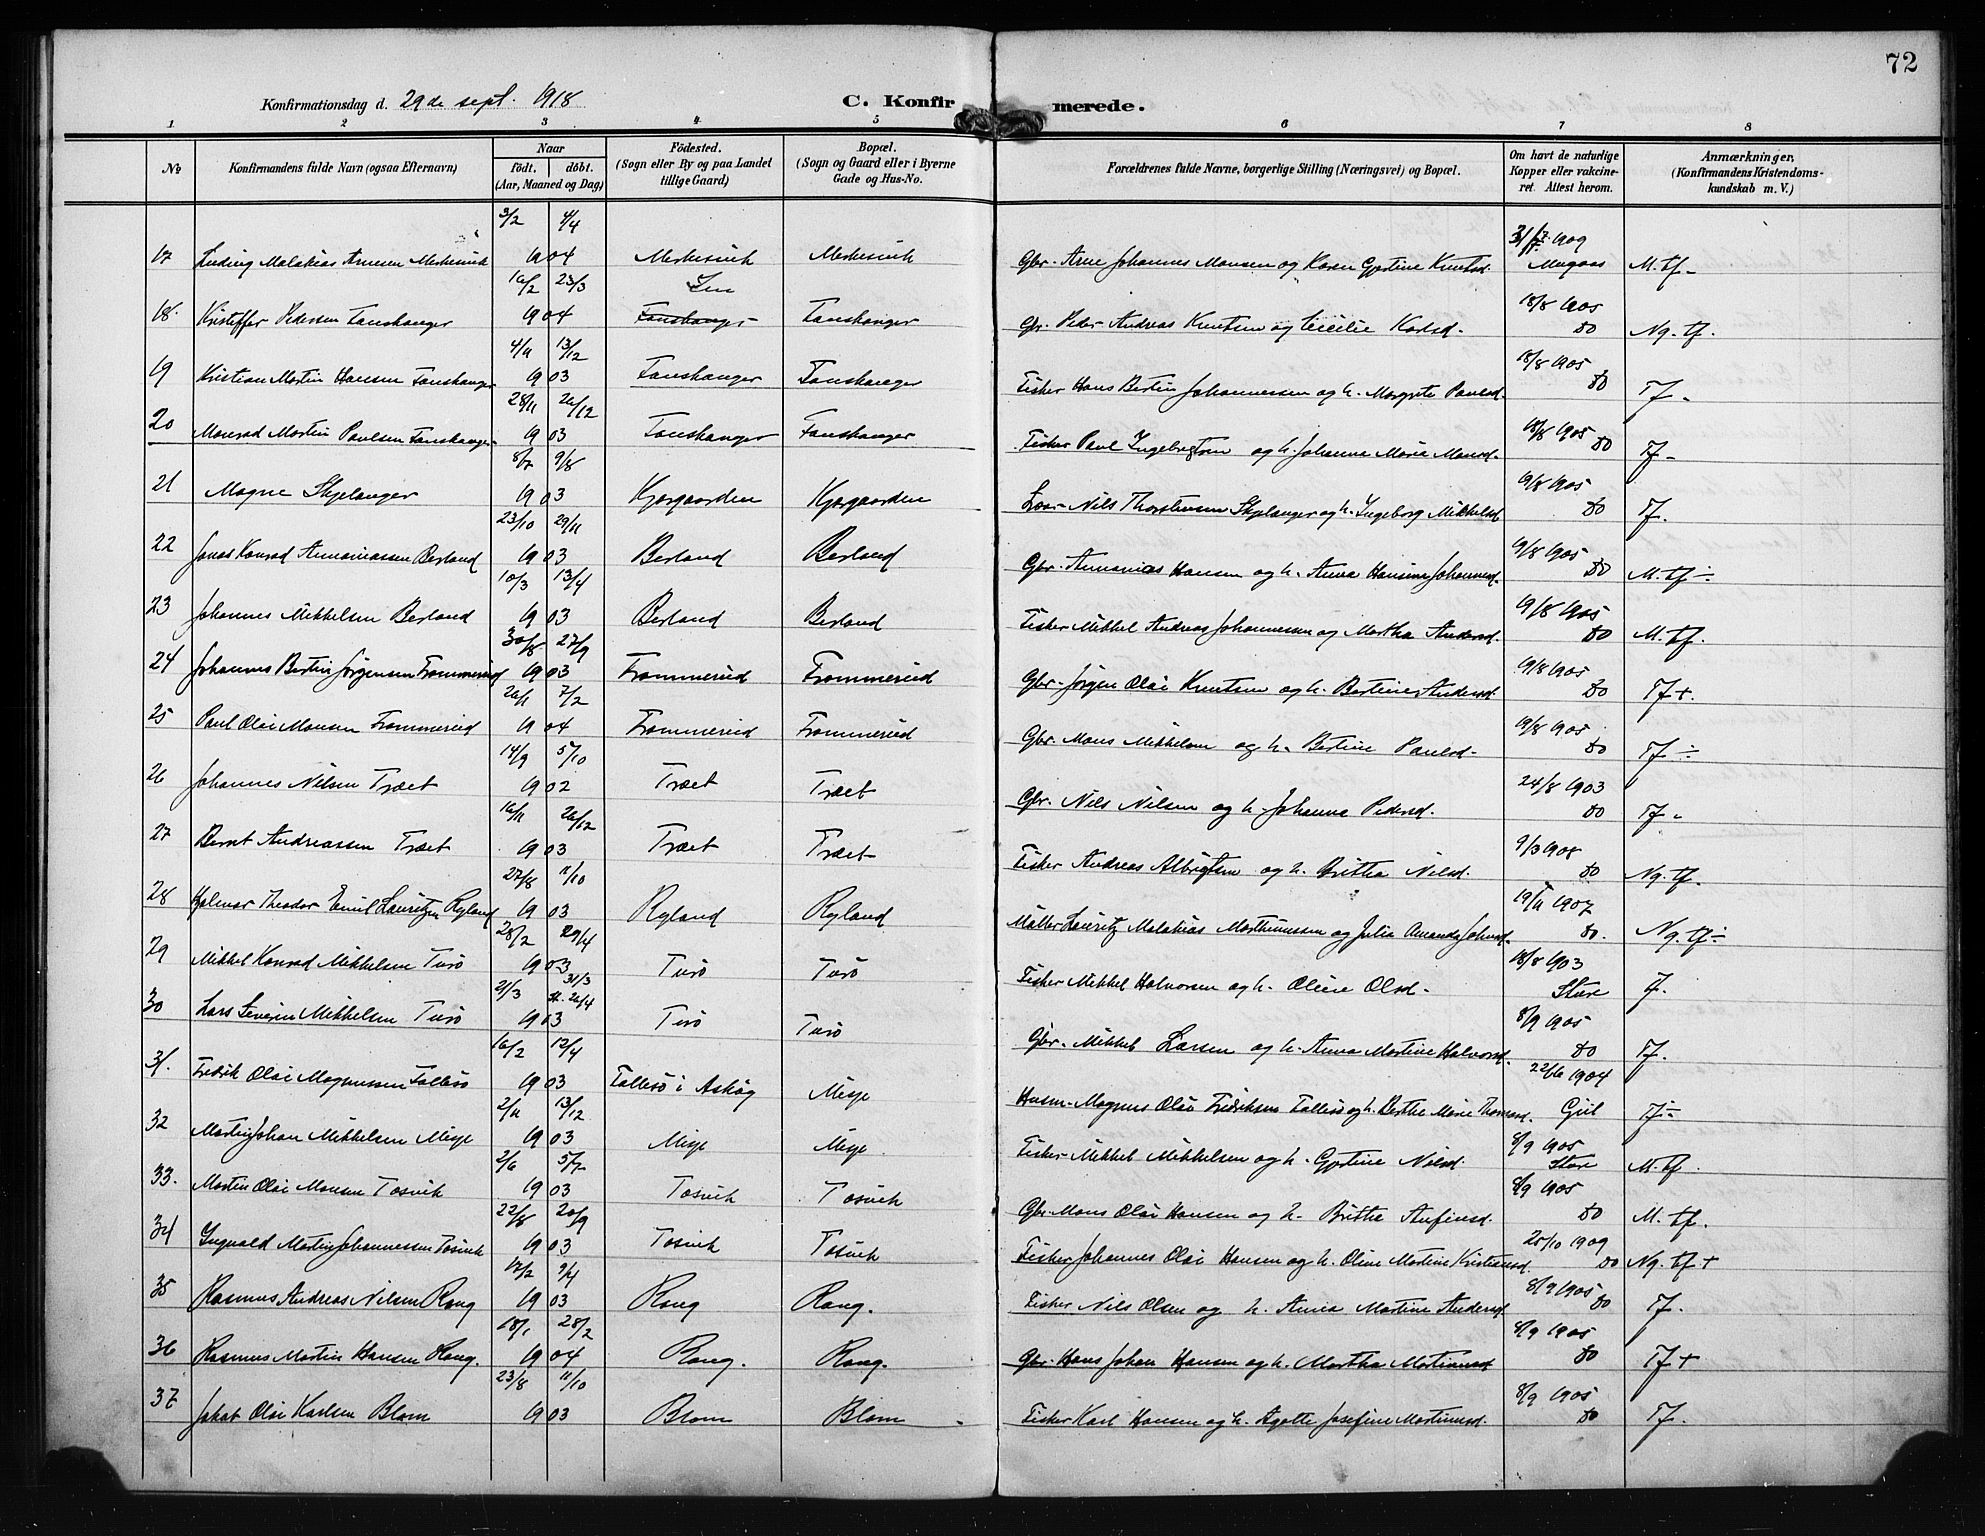 72
Konfirmationsdag d. 29de sept. 1918
C. Konfirmerede.
1 2 3 4 5 6 7 8
No
Konfirmandens fulde Navn (ogsaa Efternavn)
Naar
født. døbt.
(Aar, Maaned og Dag)
Fødested.
(Sogn eller By og paa Landet tillige Gaard)
Bopæl.
(Sogn og Gaard eller i Byerne Gade og Hus-No.
Forældrenes fulde Navne, borgerlige Stilling (Næringsvei) og Bopæl.
Om havt de naturlige Kopper eller vakcineret. Attest herom.
Anmærkninger,
(Konfirmandens Kristendomskundskab m. V.)
17 Ludvig Malakias Arnesen Merkesvik 3/2 4/4 1904 Merkesvik Merkesvik Gbr. Arne Johannes Monsen og Karen Gjertine Knutsd. 1909 M. tf.
18. Kristoffer Pedersen Fanshanger 16/2 23/3 1904 Fanshanger Gbr. Peder Andreas Knutsen og Cecilie 18/8 1905 do Ng. tf.
19 Kristian Martin Hansen Fanshanger 4/11 13/12 1903 Fanshanger Fanshanger Fisker Hans Bertin Johannessen og h. Margrete Paulsd. 18/8 1905 do Tf.
20 Monrad Martin Paulsen Fanshanger 28/11 26/12 1903 Fanshanger Fanshanger Fisker Paul Ingebrigtsen og h. Johanne Marie Monsd. 18/8 1905 do Tf.
21 Magne Skjelanger 8/7 9/8 1903 Kjærgaarden Kjærgaarden Nils Thorstensen Skjelanger og h. Ingeborg Mikkelsd 19/8 1905 do Tf.
22 Jonas Konrad Annaniassen Berland 23/10 29/11 1903 Berland Berland Gbr. Annanias Hansen og h. Anna Hansine Johannesd. 19/8 1905 do M. tf ÷
23 Johannes Mikkelsen Berland 10/3 13/4 1903 Berland Berland Fisker Mikkel Andreas Johannessen og Martha Andersd. 19/8 1905 do M. tf.
24 Johannes Bertin Jørgensen Frommereid 30/8 27/9 1903 Frommereid Frommereid Gbr. Jørgen Olai Knutsen og h. Bertine Andersd. 19/8 1905 do Tf +
25 Paul Olai Monsen Frommereid 26/1 7/2 1904 Frommereid Frommereid Gbr. Mons Mikkelsen og h. Bertine Paulsd. 19/8 1905 do Tf ÷
26 Johannes Nilsen Træet 14/9 5/10 1902 Træet Træet Gbr. Nils Nilsen og h. Johanna Pedersd. 24/8 1903 do Tf.
27 Bernt Andreassen Træet 16/11 26/12 1903 Træet Træet Fisker Andreas Albrigtsen og h. Britha Nilsd. 9/3 1908 do Ng. tf.
28 Hjalmar Theodor Emil Lauritzen Ryland 27/8 11/10 1903 Ryland Ryland Møller Lauritz Malakias Marthinussen og Julia Amanda 19/11 1907 do. Ng. tf ÷
29 Mikkel Konrad Mikkelsen Turø 28/2 29/4 1903 Turø Turø Fisker Mikkel Halvorsen og h. Oline Olsd. 18/8 1903 Sture Tf.
30 Lars Severin Mikkelsen Turø 21/3 31/3 st. 26/4 1903 Turø Turø Gbr. Mikkel Larsen og h. Anna Martine Halvorsd. 8/9 1905 do Tf.
31. Fredrik Olai Magnussen Follesø 16/2 12/4 1903 Follesø i Askøg Misje Husm. Magnus Olai Fredriksen Follesø og h. Berthe Marie Thomasd. 22/6 1904 Tf ÷
32 Martin Johan Mikkelsen Misje 2/11 13/12 1903 Misje Misje Fisker Mikkel Mikkelsen og h. Gjertine Nilsd. 8/9 1905 Sture M. tf.
33. Martin Olai Monsen Tosvik 2/6 5/7 1903 Tosvik Tosvik Gbr. Mons Olai Hansen og h. Britha Anfinsd. 8/9 1905 do M. tf.
34 Ingvald Martin Johannessen Tosvik 22/8 20/9 1903 Tosvik Tosvik Fisker Johannes Olai Hansen og h. Oline Martine Kristiansd. 25/10 1909 do Ng. tf +
35 Rasmus Andreas Nilsen Rong 17/2 9/4 1903 Rong Rong. Fisker Nils Olsen og h. Anna Martine Andersd 8/9 1905 do Tf.
36 Rasmus Martin Hansen Rong. 18/1 28/2 1904 Rong. Rong. Gbr. Hans Johan Hansen og h. Martha Martinusd 8/9 1905 do Tf +
37 Jakob Olai Karlsen Blom 23/8 11/10 1903 Blom Blom Fisker Karl Hansen og h. Agathe Josefine Martinusd. 8/9 1905 do Tf.